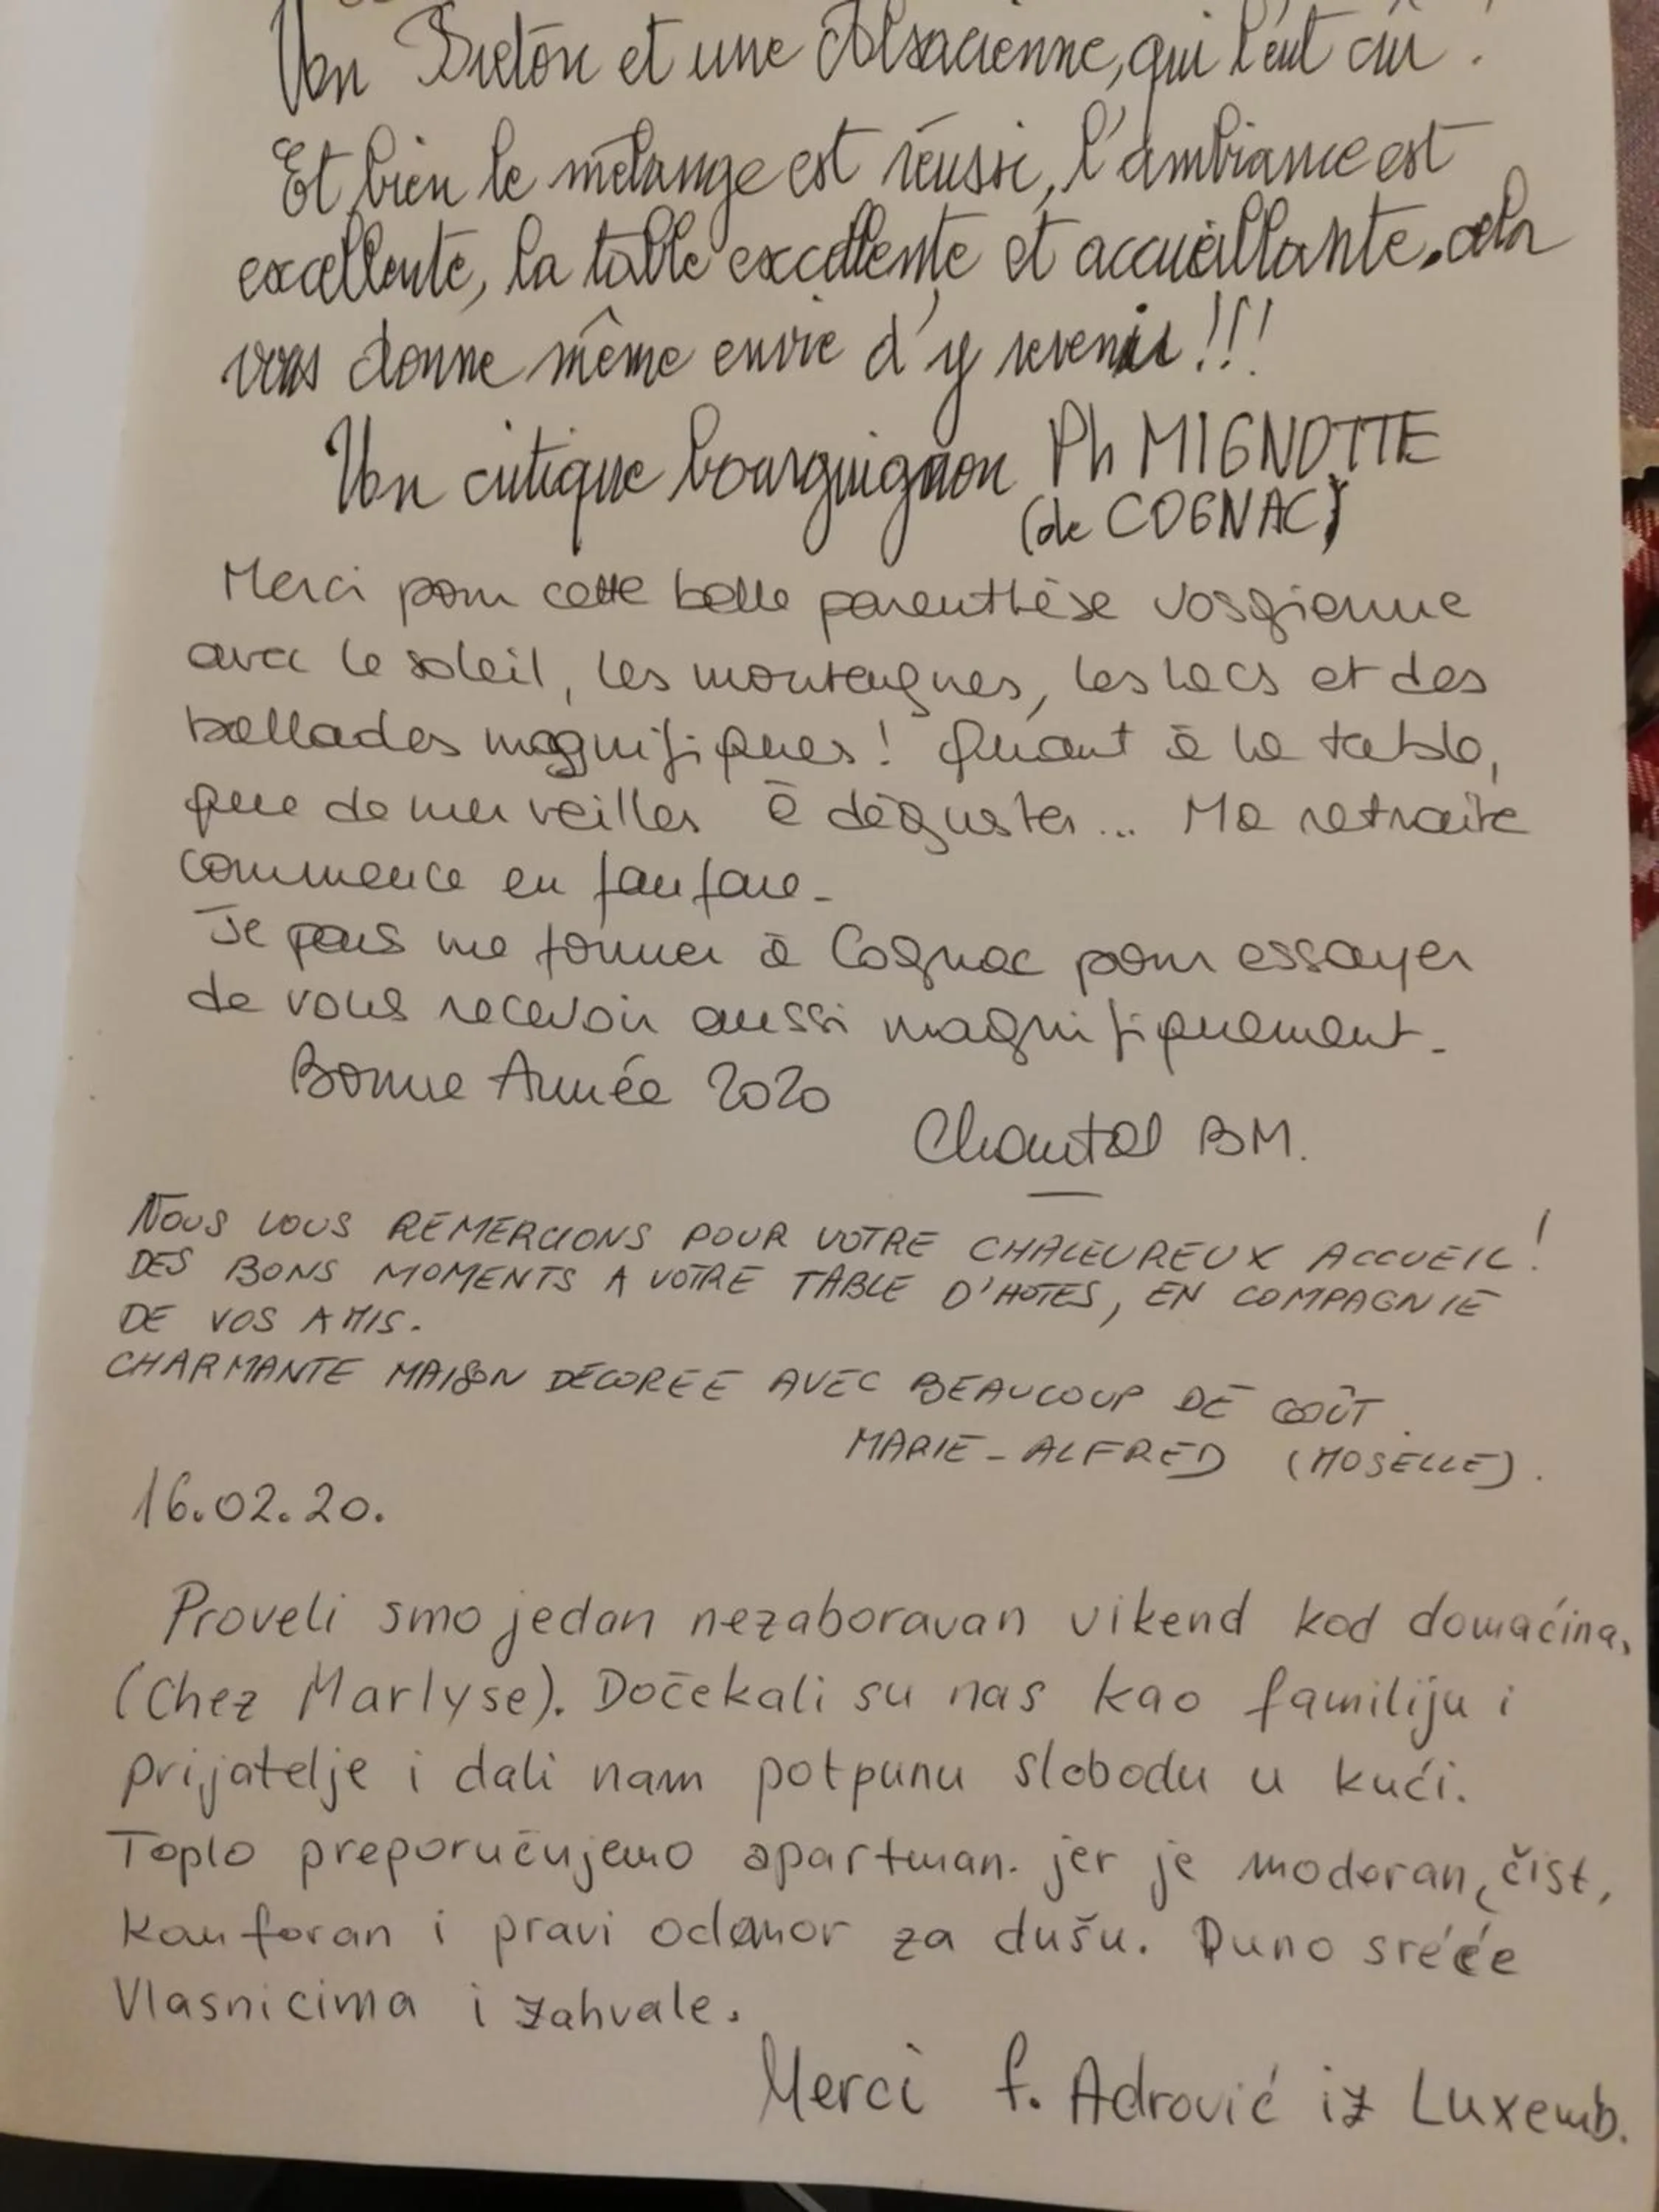 Un Breton et une Alsacienne, qui l'eut crû !
Et bien le mélange est réussi, l'ambiance est
excellente, la table excellente et accueillante. cela
vous donne même envie d'y revenir !!!
Un critique bourguignon Ph MIGNOTTE
(de COGNAC)
Merci pour cette belle parenthèse vosgienne
avec le soleil, les montagnes, les lacs et des
ballades magnifiques ! Quant à la table,
que de merveilles à déguster... Ma retraite
commence en fanfare -
Je pars me former à Cognac pour essayer
de vous recevoir aussi magnifiquement -
Bonne Année 2020
Chantal BM.
NOUS VOUS REMERCIONS POUR VOTRE CHALEUREUX ACCUEIL !
DES BONS MOMENTS A VOTRE TABLE D'HOTES, EN COMPAGNIE
DE VOS AMIS.
CHARMANTE MAISON DÉCORÉE AVEC BEAUCOUP DE GOÛT.
MARIE-ALFRED (MOSELLE).
16.02.20.
Proveli smo jedan nezaboravan vikend kod domaćina,
(Chez Marlyse). Dočekali su nas kao familiju i
prijatelje i dali nam potpunu slobodu u kući.
Toplo preporučujemo apartman. jer je moderan, čist,
konforan i pravi odomor za dušu. Puno sreće
Vlasnicima i zahvale.
Merci f. Adrović iz Luxemb.